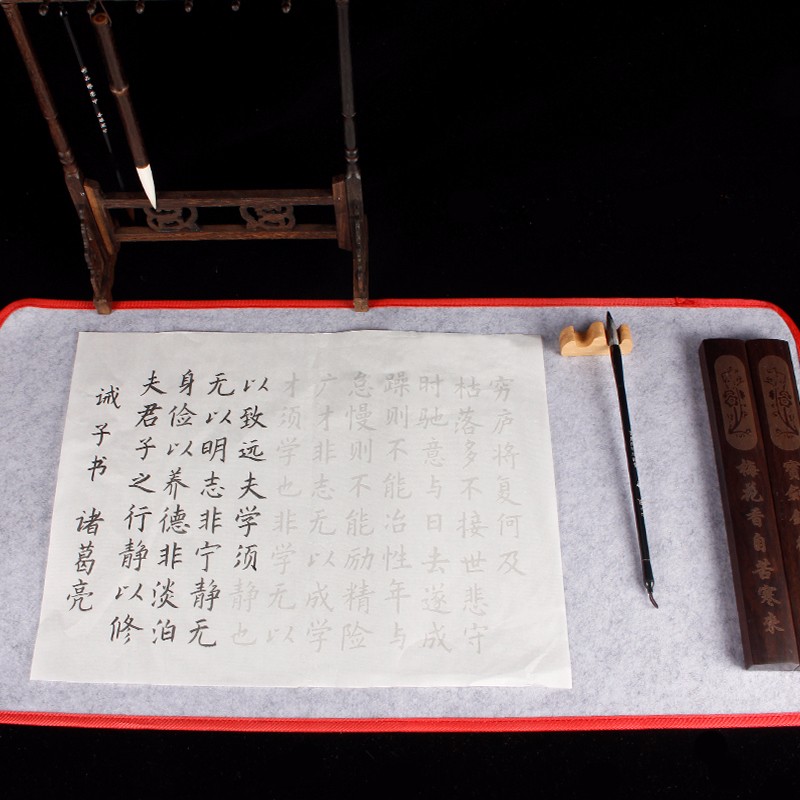 诫子书 诸葛亮
夫君子之行静以修
身俭以养德非淡泊
无以明志非宁静无
以致远夫学须静也
才须学也非学无以
广才非志无以成学
怠慢则不能励精险
躁则不能冶性年与
时驰意与日去遂成
枯落多不接世悲守
穷庐将复何及
梅花香自苦寒来